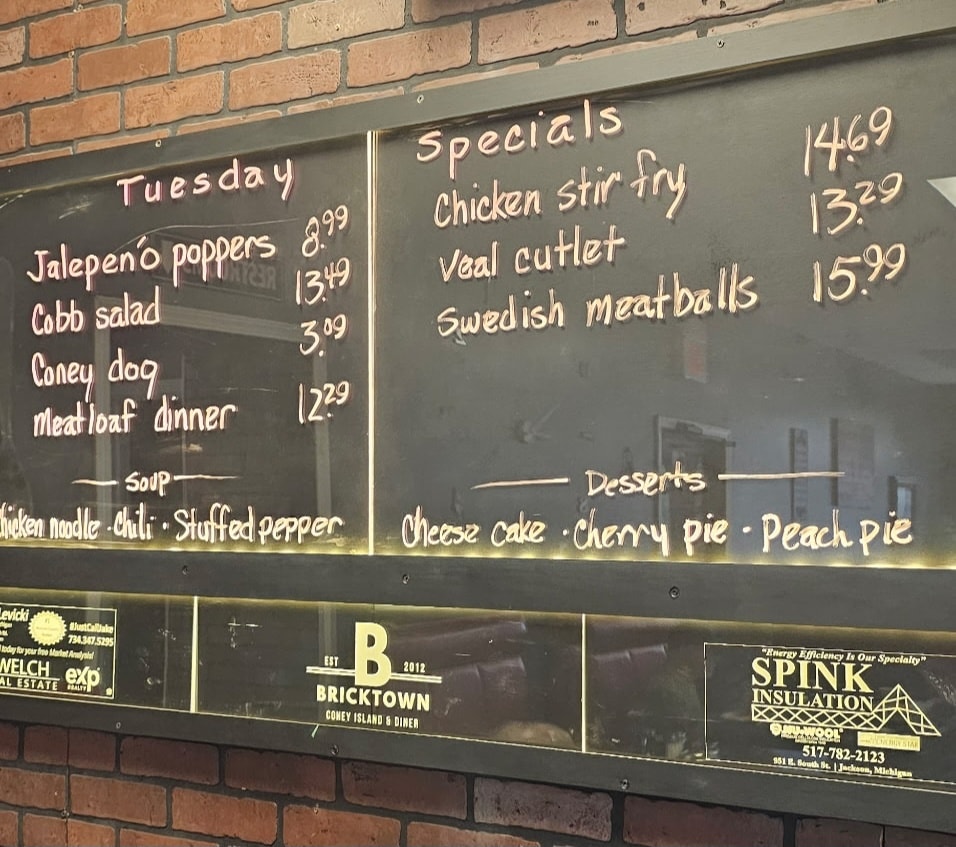 Tuesday
Jalepeńo poppers 8.99
Cobb salad 13.49
Coney dog 3.09
Meatloaf dinner 12.29
Soup
Chicken noodle · Chili · Stuffed pepper
Specials
Chicken stir fry 14.69
Veal cutlet 13.29
Swedish meatballs 15.99
Desserts
Cheese cake · Cherry pie · Peach pie
#JustCallJake
734.347.5295
today for your free Market Analysis!
WELCH
REAL ESTATE
exp
REALTY
B
EST 2012
BRICKTOWN
CONEY ISLAND & DINER
"Energy Efficiency Is Our Specialty"
SPINK
INSULATION
517-782-2123
951 E. South St. | Jackson, Michigan